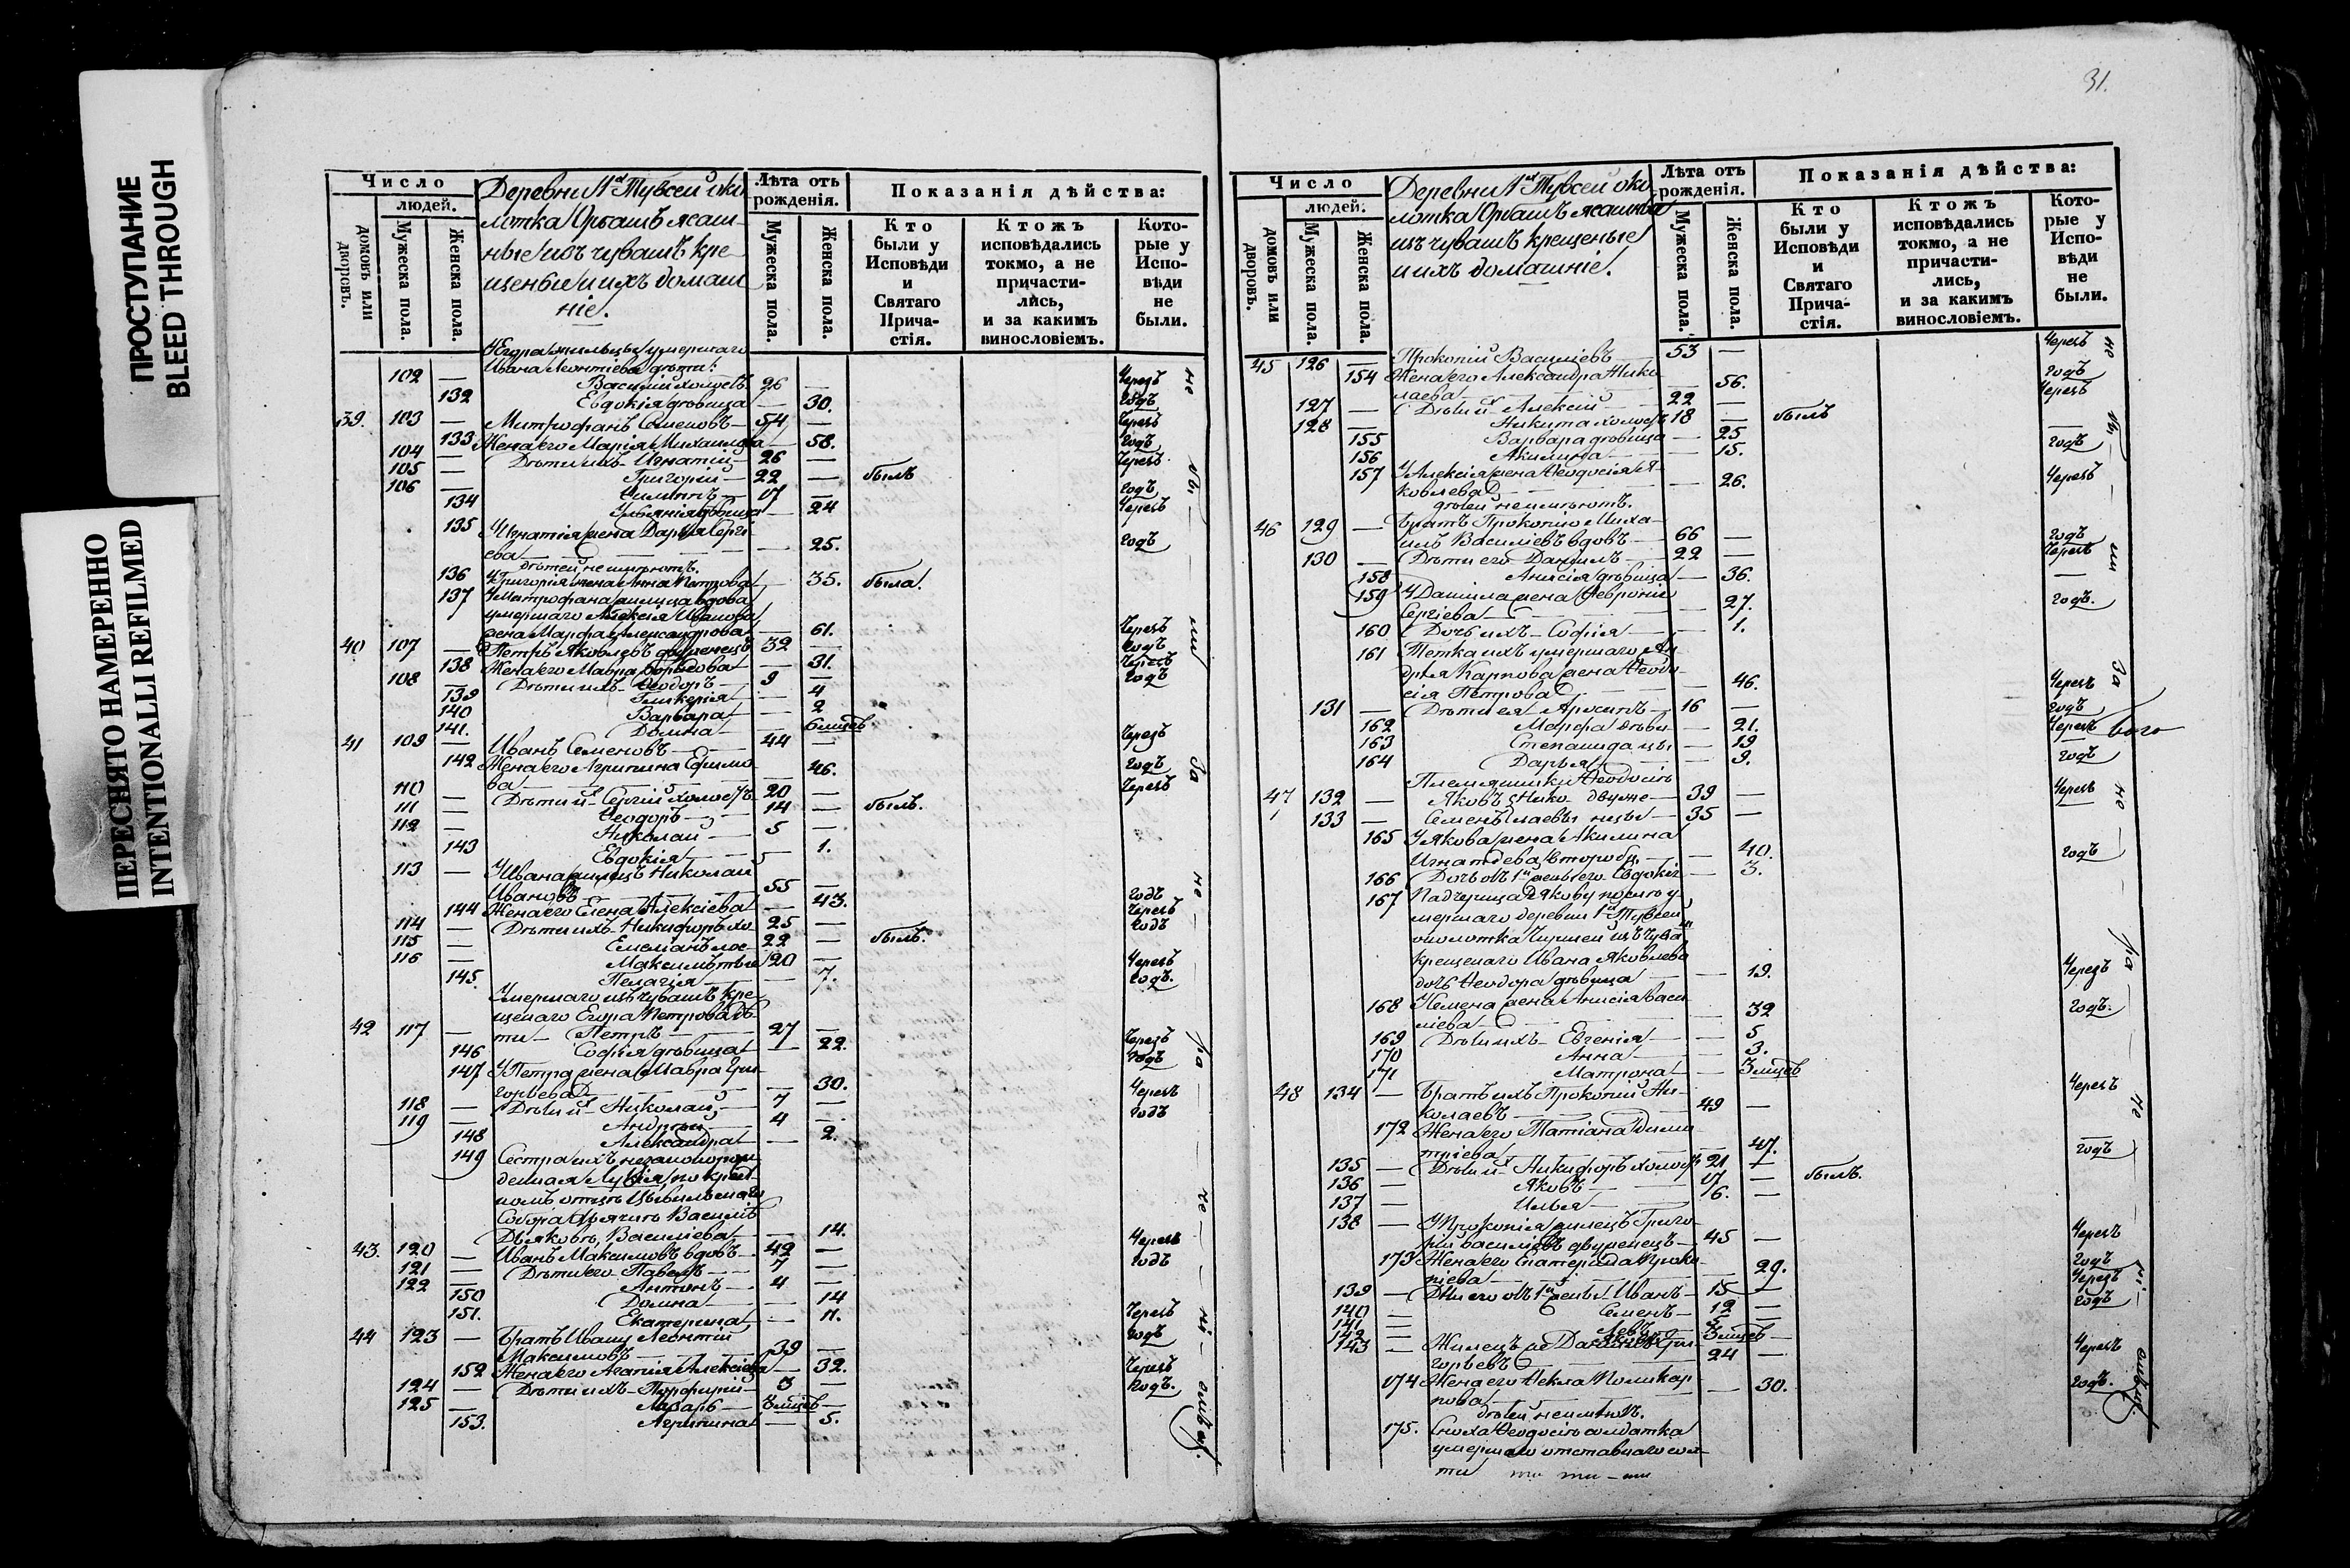 ПРОСТУПАНИЕ
BLEED THROUGH
ПЕРЕСНЯТО НАМЕРЕННО
INTENTIONALLI REFILMED
Число
людей.
домовъ или дворовъ.
Мужеска пола.
Женска пола.
Деревни 1й Тувсей око
лотка Орбашъ ясаш-
ные изъ чувашъ кре-
щеные и ихъ домаш
ніе.
Лѣта отъ рожденія.
Мужеска пола.
Женска пола.
Показанія дѣйства:
Кто были у Исповѣди и Святаго Прича- стія.
Ктожъ исповѣдались токмо, а не причасти- лись, и за какимъ винословіемъ.
Кото- рые у Испо- вѣди не были.
умершаго
Ивана Леонтіева дѣти:
102 — Василій холостъ 26 — Черезъ
132 Евдокія дѣвица — 30. годъ
39. 103 — Митрофанъ Семеновъ — 54 — Черезъ
133 Жена его Марія Михаилова — 58. годъ
104 — Дѣти ихъ Игнатій — 26 — Черезъ
105 — Григорій — 22 — былъ
106 — 17 — годъ
134 дѣвица — 24 Черезъ
135 Игнатія жена Дарья Сергі-
ева — 25. годъ
дѣтей не имѣютъ.
136 Григорія жена Анна Петрова — 35. была.
137 У Митрофана жилица вдова
умершаго Алексія Иванова
жена Марфа Александрова — 61. Черезъ
40 107 — Петръ Яковлевъ двуженецъ 32 — годъ
138 Жена его Мавра — 31. Черезъ
108 — Дѣти ихъ Ѳеодоръ — 9 — годъ
139 Гликерія — 4
140 Варвара — 2
141. Домна — 6 мцевъ
41 109 — Иванъ Семеновъ — 44 — Черезъ
142 Жена его Агрипина Ефимо
ва — 46. годъ
110 — Дѣти ихъ Сергій холостъ 20 — Черезъ
111 — Ѳеодоръ — 14 — былъ.
112 — Николай — 5 —
143 Евдокія — 1.
113 — У Ивана жилецъ Николай
Ивановъ — 55 — годъ
144 Жена его Елена Алексіева — 43. Черезъ
114 — Дѣти ихъ Никифоръ хо 25 — годъ
115 — Емеліанъ лос 22 — былъ.
116 — Максимъ тые 20 — Черезъ
145. Пелагія — 7. годъ.
Умершаго изъ чувашъ кре-
щенаго Егора Петрова дѣ-
42 117 — ти Петръ — 27 — Черезъ
146 Софія дѣвица — 22. годъ
147 У Петра жена Мавра Гри-
горьева — 30. Черезъ
118 — Дѣти ихъ Николай — 7 — годъ
119 — Андрей — 4 —
148 Александра — 2.
149 Сестра ихъ незаконорож
денная по крест
номъ отцѣ Цывильскаго
Собора Василіѣ
Дьяковѣ, Васильева — 14. Черезъ
43. 120 — Иванъ Максимовъ вдовъ 42 — годъ
121 — Дѣти его Павелъ — 7 —
122 — Антонъ — 4 —
150 Домна — 14
151. Екатерина — 11. Черезъ
44 123 — Братъ Ивану Леонтій
Максимовъ — 39 — годъ
152 Жена его Агапія Алексіева — 32. Черезъ
124 — Дѣти ихъ Порфирій — 3 — годъ.
125 — Лазарь — 3 мцевъ —
153. Агрипина — 5.
31.
Число
людей.
домовъ или дворовъ.
Мужеска пола.
Женска пола.
Деревни 1й Тувсей око
лотка Орбашъ ясашные
изъ чувашъ крещеные
и ихъ домашніе.
Лѣта отъ рожденія.
Мужеска пола.
Женска пола.
Показанія дѣйства:
Кто были у Исповѣди и Святаго Прича- стія.
Ктожъ исповѣдались токмо, а не причасти- лись, и за какимъ винословіемъ.
Кото- рые у Испо- вѣди не были.
45 126 — Прокопій Василіевъ — 53 — Черезъ
154 Жена его Александра Нико
лаева — 56. годъ
127 — Дѣти ихъ Алексій — 22 — Черезъ
128 — Никита холостъ 18 — былъ
155 Варвара дѣвица — 25
156 Акилина — 15. годъ
157 У Алексія жена Ѳеодосія Я-
ковлева — 26. Черезъ
дѣтей не имѣютъ.
46 129 — Братъ Прокопію Миха-
илъ Василіевъ вдовъ — 66 — годъ
130 — Дѣти его Даніилъ — 22 — Черезъ
158 Анисія дѣвица — 36.
159 У Даніила жена Февронія
Сергіева — 27. годъ.
160 Дочь ихъ София — 1.
161 Тетка ихъ умершаго Ан
дрея Карпова жена Ѳеодо-
сія Петрова — 46. Черезъ
131 — Дѣти ея — 16 — годъ
162 Марфа дѣви — 21. Черезъ
163 Степанида цы — 19
164 Дарья — 9. годъ
Племянники Ѳеодосіи
47 132 — Яковъ Нико двуже — 39 — Черезъ
133 — Семенъ лаевы нцы — 35 —
165 У Якова жена Акилина
Игнатьева — 40. годъ
166 Дочь отъ 1й жены его Евдокія — 3.
167 Падчерица Якову у
мершаго деревни 1й Тувсей
околотка изъ чувашъ
крещенаго Ивана Яковлева
дочь Ѳеодора дѣвица — 19. Черезъ
168 У Семена жена Анисія Васи
ліева — 32 годъ.
169 Дѣти ихъ Евгенія — 5
170 Анна — 3.
171 Матрона — 3 мцевъ
48 134 — Братъ ихъ Прокопій Ни-
колаевъ — 49 — Черезъ
172 Жена его Татіана Дими
тріева — 47. годъ
135 — Дѣти ихъ Никифоръ холостъ 21 —
136 — Яковъ — 17 — былъ.
137 — Илья — 6. —
138 — У Прокопія жилецъ Григо-
рій Василіевъ двуженецъ — 45 — Черезъ
173 Жена его Екатерина Проко
піева — 29. годъ
139 — Дѣти его отъ 1й жены Иванъ — 15 — Черезъ
140 — Семенъ — 12 — годъ
141 — Левъ — 5 —
142 — 3 мцев —
143 — Жилецъ же Даніилъ Гри-
горьевъ — 24 — Черезъ
174 Жена его Ѳекла Поликар-
пова — 30. годъ.
дѣтей не имѣютъ.
175. Сноха Ѳеодосія солдатка
умершаго отставнаго сол-